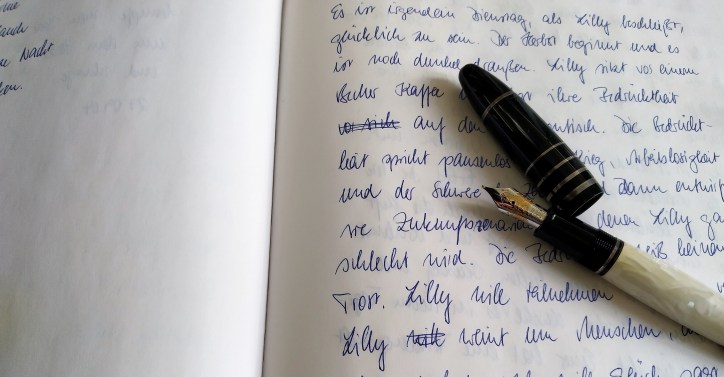 Nacht
Es ist irgendein Dienstag, als Lilly beschließt,
glücklich zu sein. Der Herbst beginnt und es
ist noch dunkel draußen. Lilly sitzt vor einem
Becher Kaffee ihre Bedrücktheit
auf den Die Bedrückt-
heit spricht pausenlos Krieg, Arbeitslosigkeit
und der Schwere dann entwirft
sie Zukunftsszenarien denen Lilly ga
schlecht wird. Die keinen
Trost. Lilly will teilnehmen
Lilly weint um Menschen,
Glück